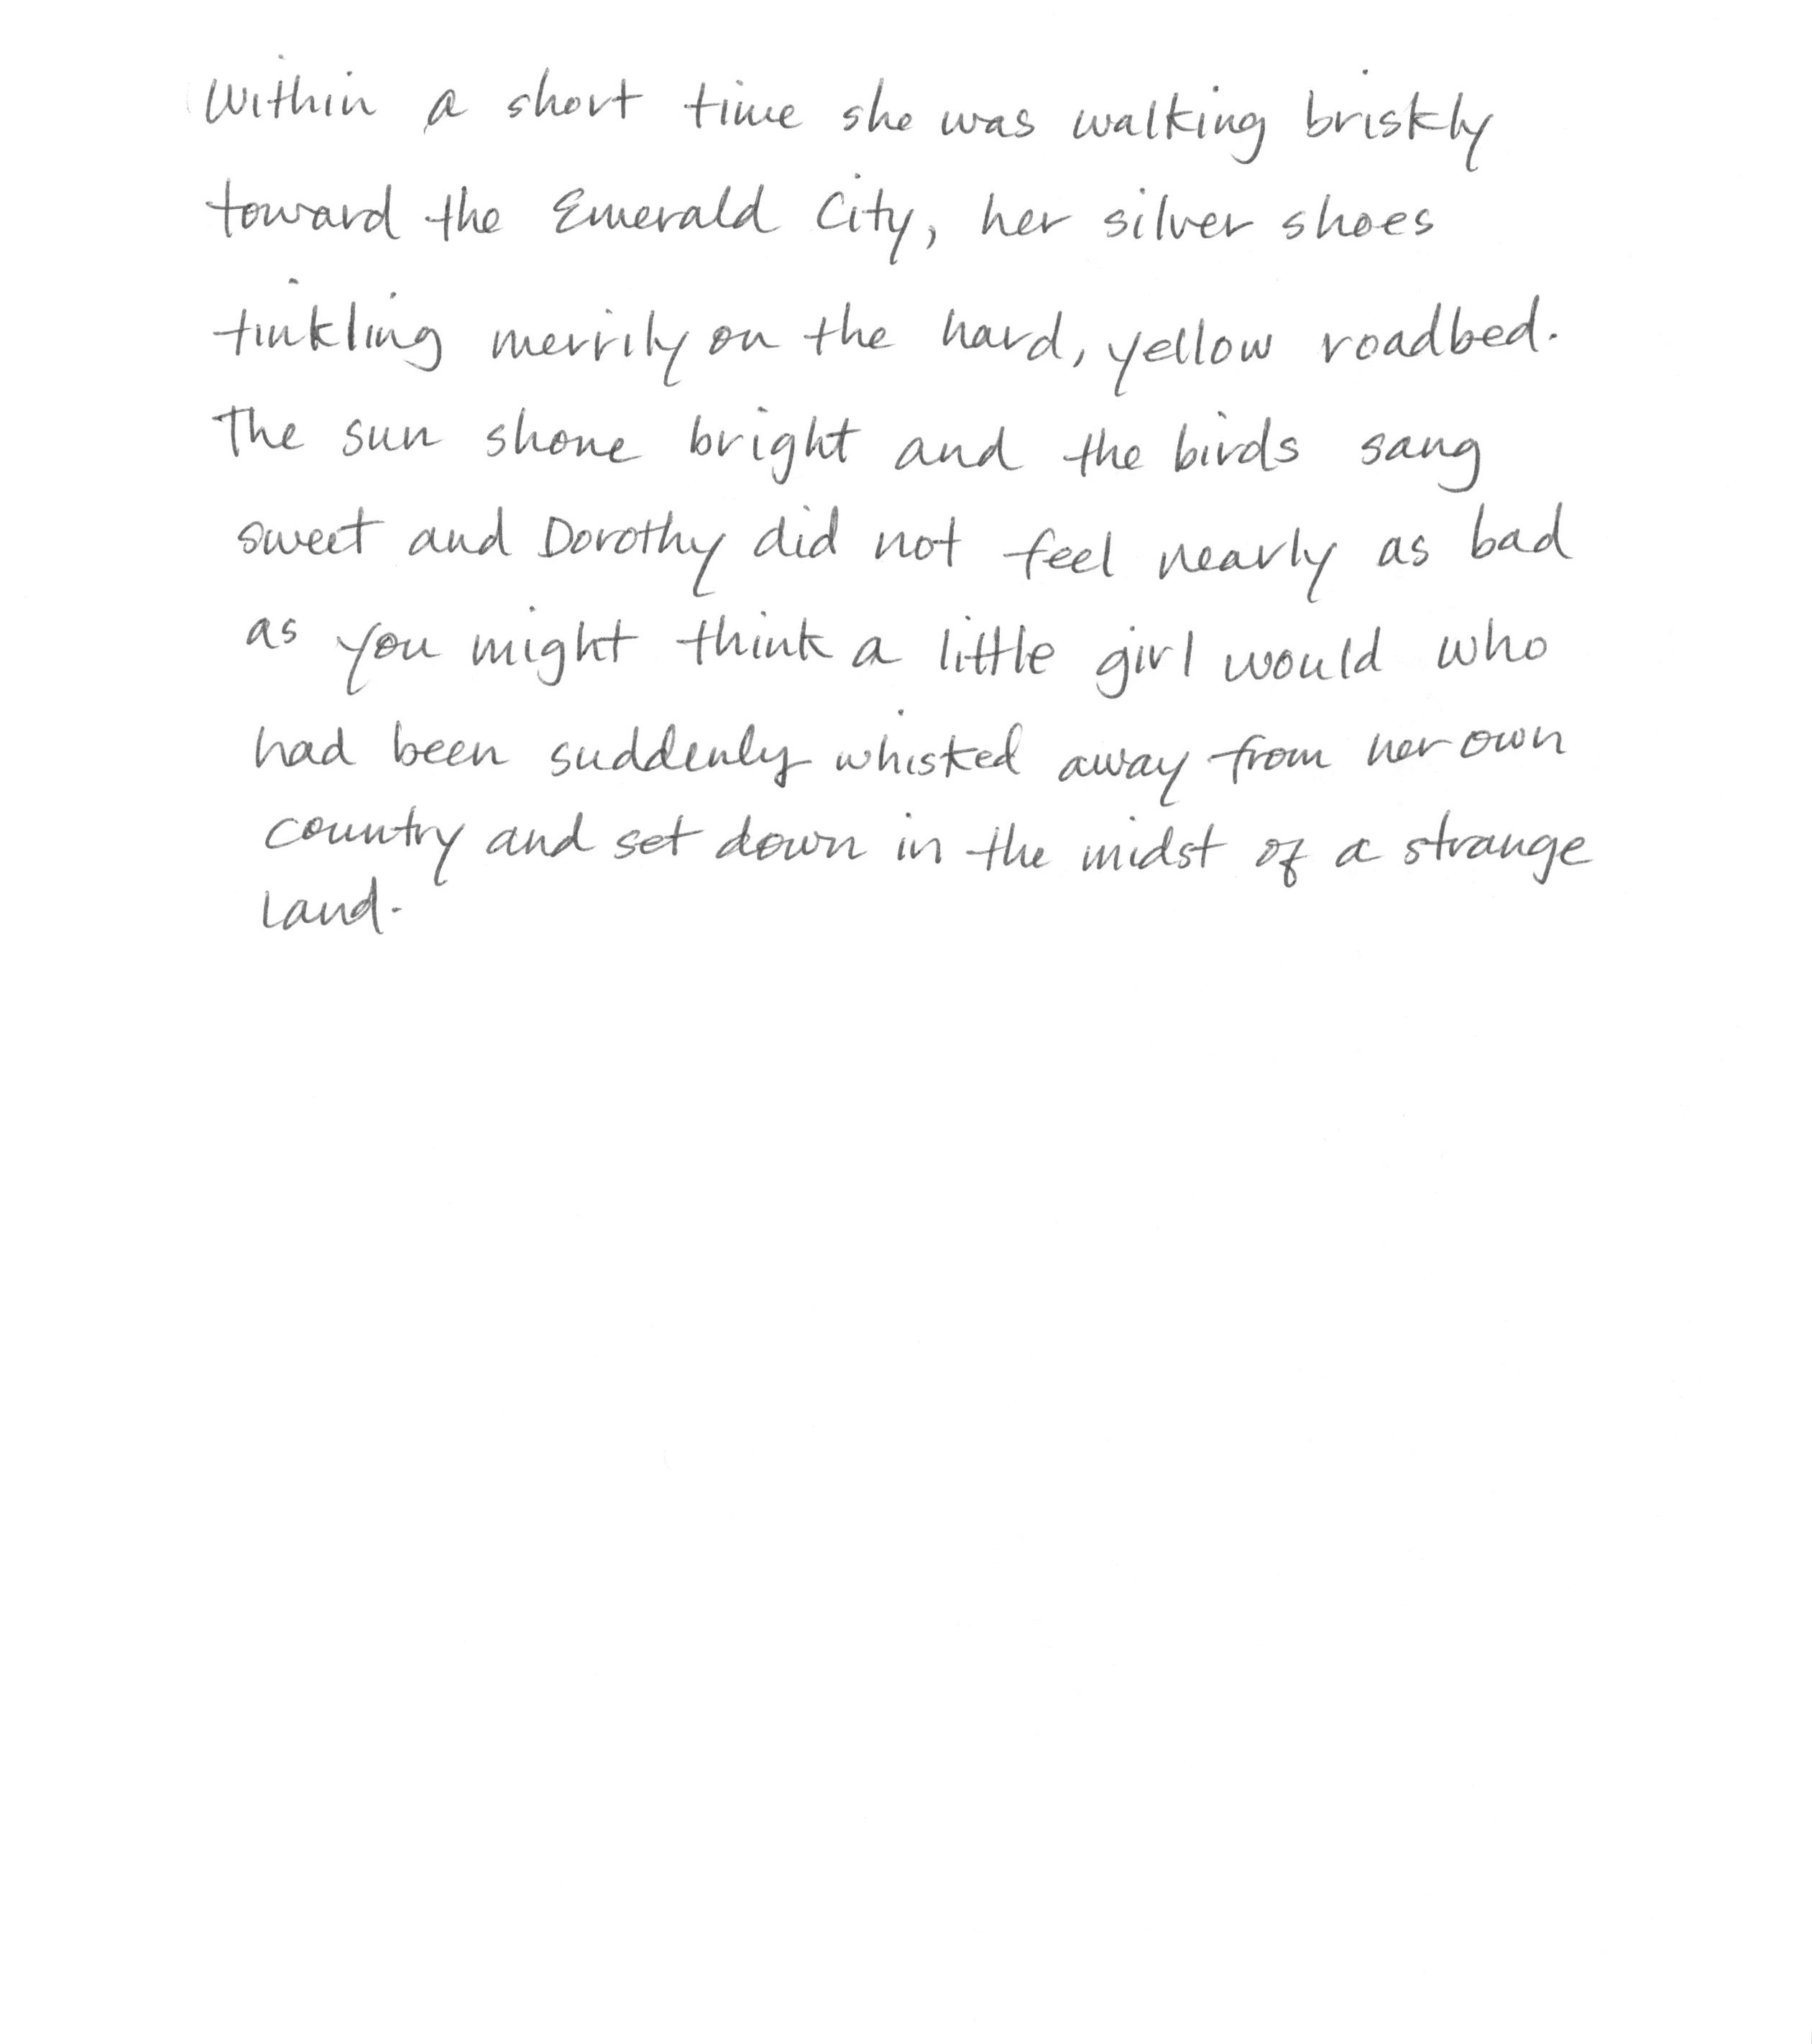 Within a short time she was walking briskly
toward the Emerald City, her silver shoes
tinkling merrily on the hard, yellow roadbed.
The sun shone bright and the birds sang
sweet and Dorothy did not feel nearly as bad
as you might think a little girl would who
had been suddenly whisked away from her own
country and set down in the midst of a strange
land.